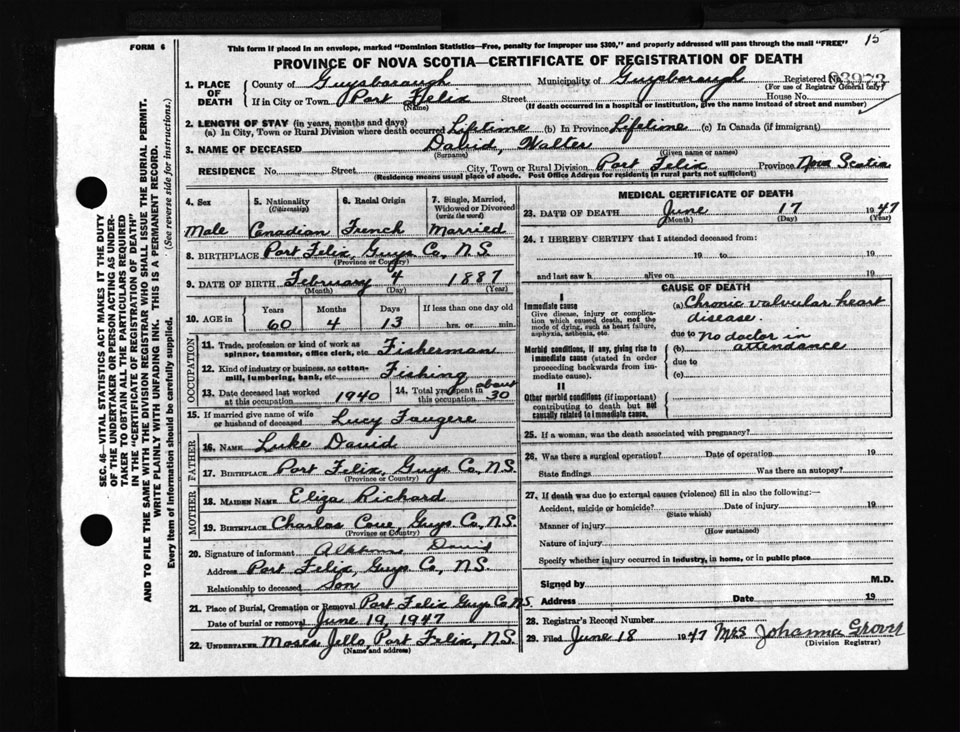 FORM 6
This form if placed in an envelope, marked "Dominion Statistics—Free, penalty for improper use $300," and properly addressed will pass through the mail "FREE"
15
PROVINCE OF NOVA SCOTIA—CERTIFICATE OF REGISTRATION OF DEATH
1. PLACE OF DEATH
County of Guysborough Municipality of Guysborough Registered No. 03973
(For use of Registrar General only)
If in City or Town Port Felix Street House No.
(Name) (If death occurred in a hospital or institution, give the name instead of street and number)
2. LENGTH OF STAY (in years, months and days)
(a) In City, Town or Rural Division where death occurred Lifetime (b) In Province Lifetime (c) In Canada (if immigrant)
3. NAME OF DECEASED David, Walter
(Surname) (Given name or names)
RESIDENCE No. Street City, Town or Rural Division Port Felix Province Nova Scotia
(Residence means usual place of abode. Post Office Address for residents in rural parts not sufficient)
4. Sex 5. Nationality (Citizenship) 6. Racial Origin 7. Single, Married, Widowed or Divorced (write the word)
Male Canadian French Married
8. BIRTHPLACE Port Felix, Guys. Co, N.S.
(Province or Country)
9. DATE OF BIRTH February 4 1887
(Month) (Day) (Year)
10. AGE in Years Months Days If less than one day old
60 4 13 hrs. or min.
OCCUPATION
11. Trade, profession or kind of work as spinner, teamster, office clerk, etc. Fisherman
12. Kind of industry or business, as cotton-mill, lumbering, bank, etc. Fishing
13. Date deceased last worked at this occupation 1940 14. Total yrs. spent in this occupation about 30
15. If married give name of wife or husband of deceased Lucy Fougere
FATHER
16. NAME Luke David
17. BIRTHPLACE Port Felix, Guys. Co, N.S.
(Province or Country)
MOTHER
18. MAIDEN NAME Eliza Richard
19. BIRTHPLACE Charlos Cove, Guys. Co, N.S.
(Province or Country)
20. Signature of informant David
Address Port Felix, Guys Co, N.S.
Relationship to deceased Son
21. Place of Burial, Cremation or Removal Port Felix Guys Co N.S.
Date of burial or removal June 19, 1947
22. UNDERTAKER Moses Jello, Port Felix, N.S.
(Name and address)
MEDICAL CERTIFICATE OF DEATH
23. DATE OF DEATH June 17 1947
(Month) (Day) (Year)
24. I HEREBY CERTIFY that I attended deceased from:
19 to 19
and last saw h alive on 19
CAUSE OF DEATH
I
Immediate cause
Give disease, injury or complication which caused death, not the mode of dying, such as heart failure, asphyxia, asthenia, etc.
(a) Chronic valvular heart disease.
due to No doctor in
(b) attendance
Morbid conditions, if any, giving rise to immediate cause (stated in order proceeding backwards from immediate cause).
due to
(c)
II
Other morbid conditions (if important) contributing to death but not causally related to immediate cause.
25. If a woman, was the death associated with pregnancy?
26. Was there a surgical operation? Date of operation 19
State findings Was there an autopsy?
27. If death was due to external causes (violence) fill in also the following:—
Accident, suicide or homicide? Date of injury 19
(State which)
Manner of injury
(How sustained)
Nature of injury
Specify whether injury occurred in industry, in home, or in public place
Signed by M.D.
Address Date 19
28. Registrar's Record Number
29. Filed June 18 1947 Mrs Johanna
(Division Registrar)
SEC. 46—VITAL STATISTICS ACT MAKES IT THE DUTY
OF THE UNDERTAKER OR PERSON ACTING AS UNDER-
TAKER TO OBTAIN ALL THE PARTICULARS REQUIRED
IN THE "CERTIFICATE OF REGISTRATION OF DEATH"
AND TO FILE THE SAME WITH THE DIVISION REGISTRAR WHO SHALL ISSUE THE BURIAL PERMIT.
WRITE PLAINLY WITH UNFADING INK. THIS IS A PERMANENT RECORD.
Every item of information should be carefully supplied. (See reverse side for instructions.)